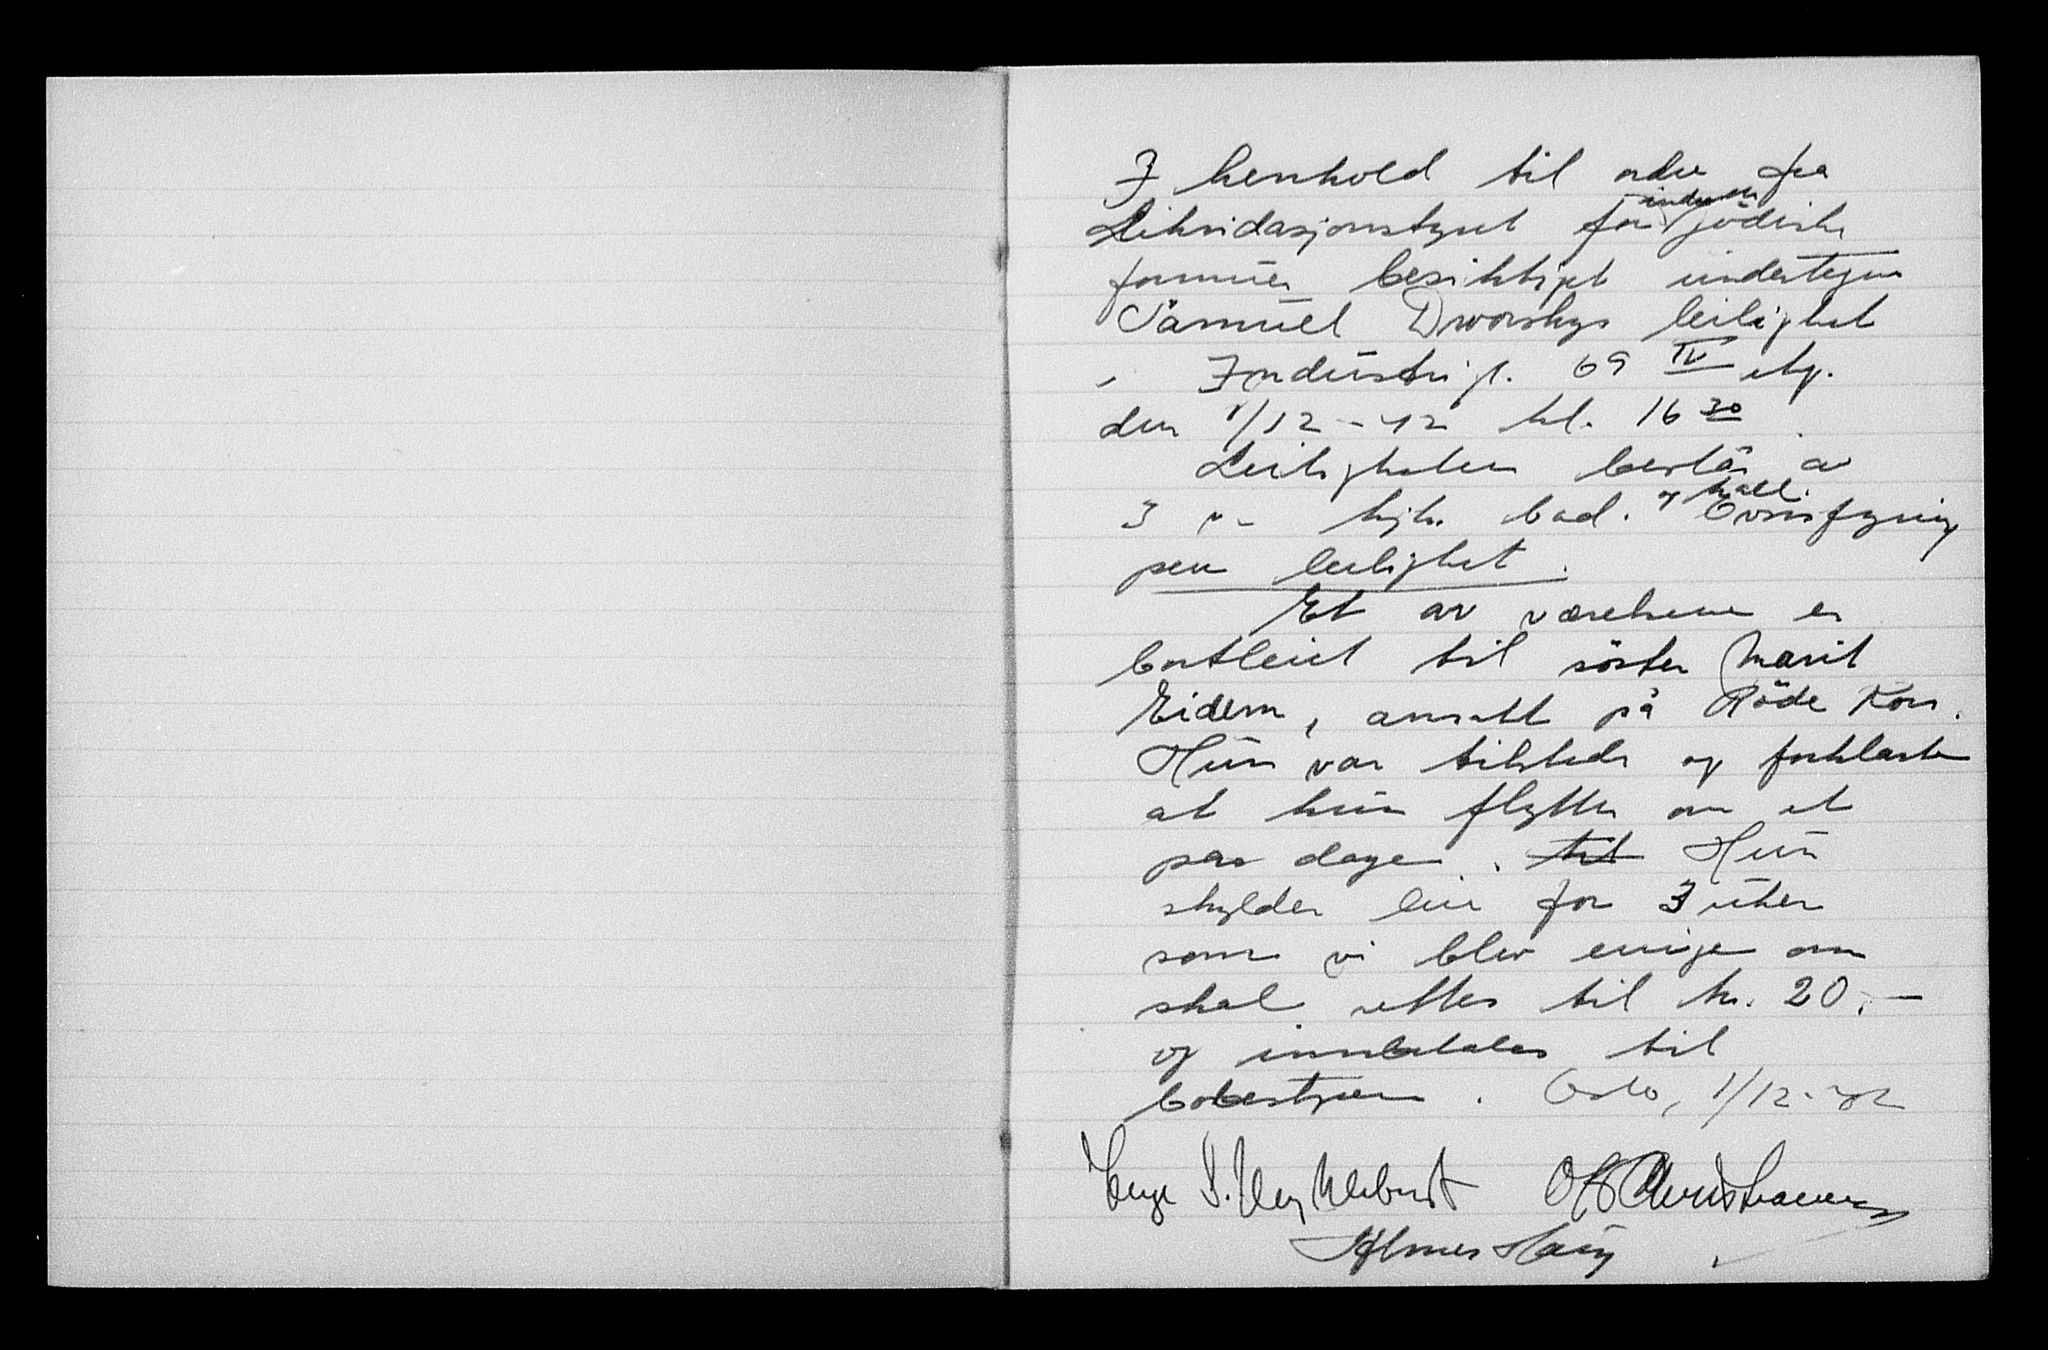 I henhold til ordre fra
Likvidasjonstyret for inndratte jödiske
formuer besiktiget undertegn
Samuel Dworskys leilighet
i Industrigt. 69 IV etg.
den 1/12-42 kl. 16 30
Leiligheten består av
3 v- kjk. bad. og hall. Ovnsfyring
pen leilighet.
Et av værelsene er
bortleiet til söster Marit
Eidem, ansatt på Röde Kors.
Hun var tilstede og forklarte
at hun flytter om et
par dager. Hun
skylder leie for 3 uker
som vi blev enige om
skal settes til kr. 20.-
og innbetales til
bobestyrer. Oslo, 1/12-42
Christiansen
Haug